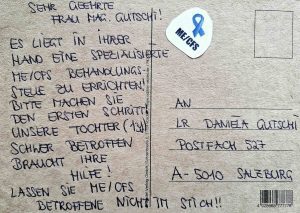 SEHR GEEHRTE
FRAU MAG. GUTSCHI!
ES LIEGT IN IHRER
HAND EINE SPEZIALISIERTE
ME/CFS BEHANDLUNGS-
STELLE ZU ERRICHTEN!
BITTE MACHEN SIE
DEN ERSTEN SCHRITT!
UNSERE TOCHTER
SCHWER BETROFFEN
BRAUCHT IHRE
HILFE!
LASSEN SIE ME/CFS
BETROFFENE NICHT IM STICH!!
ME/CFS
AN
LR DANIELA GUTSCHI
POSTFACH 527
A-5010 SALZBURG